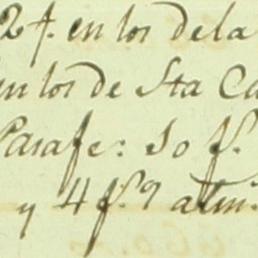 2 f. en los dela
en los de Sta Ca
Parafe: 10 f.
y 4 f.s 9 alm.